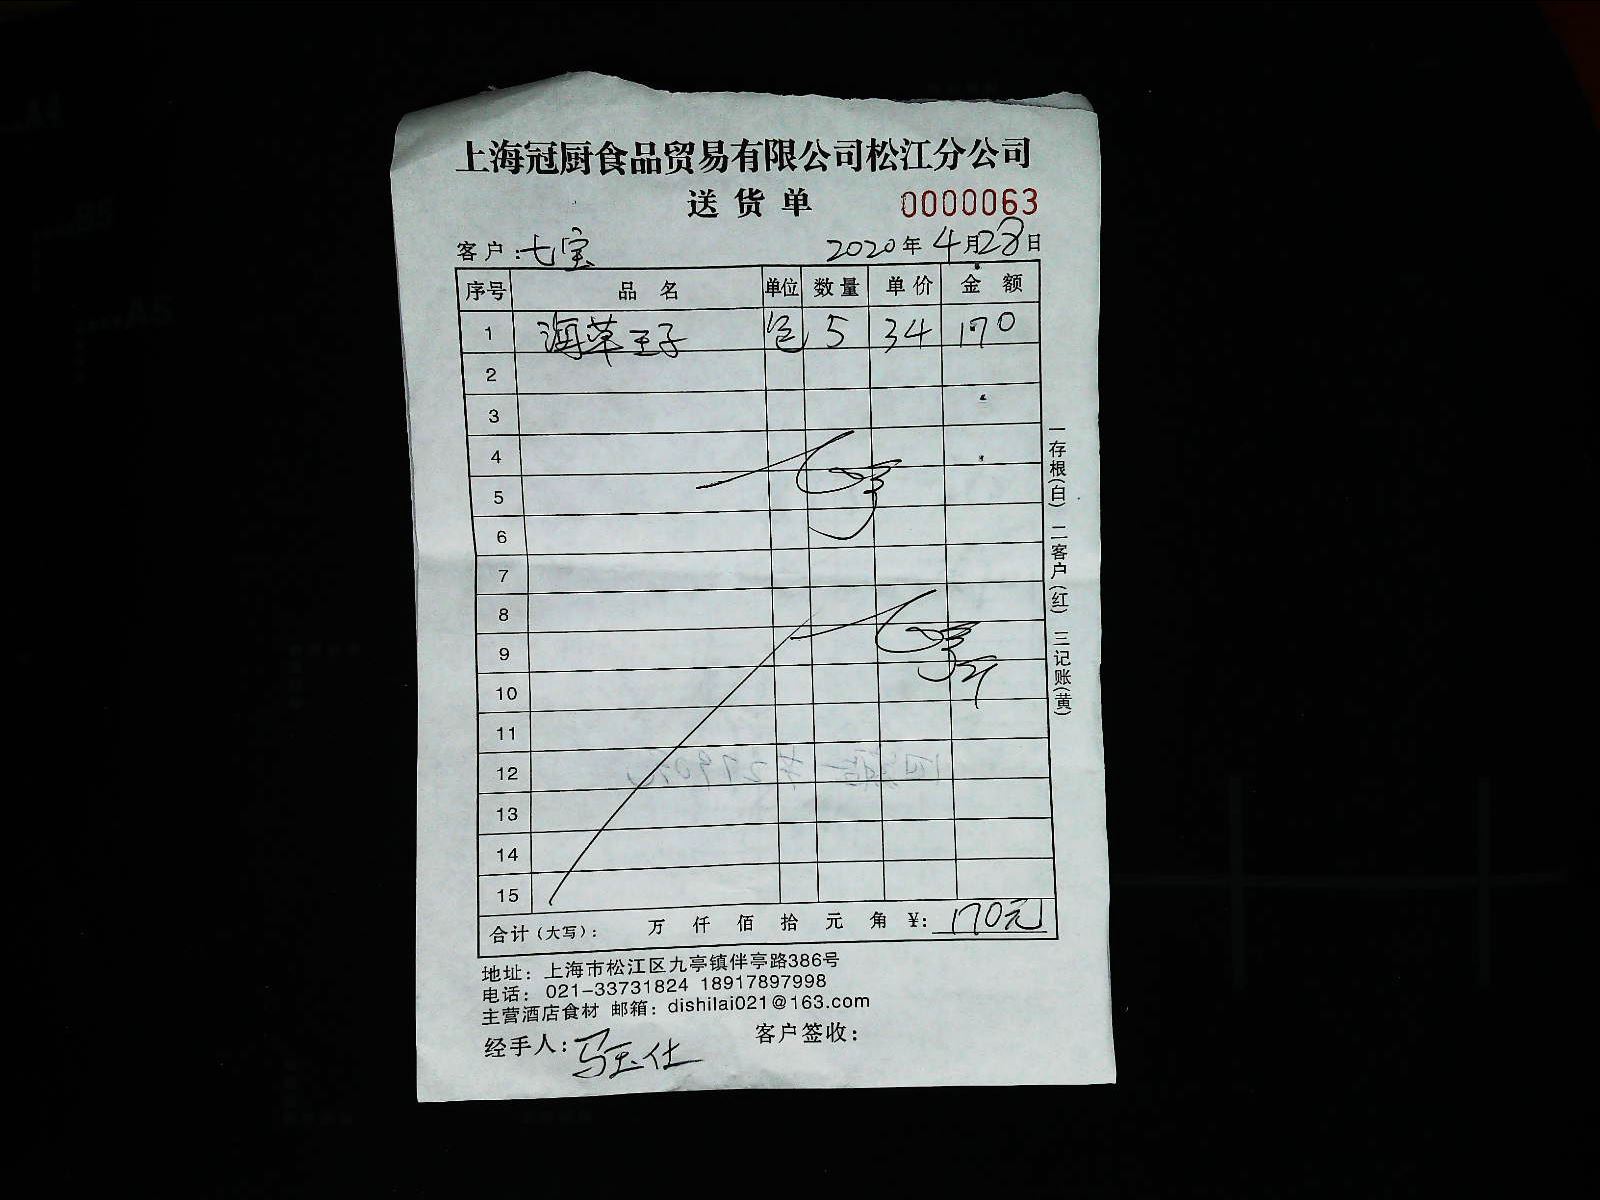 上海冠厨食品贸易有限公司松江分公司
送货单 0000063
客户:七宝 2020年4月28日
序号 品名 单位 数量 单价 金额
1 海草王子 包 5 34 170
2
3
4
5
6
7
8
9
10
11
12
13
14
15
合计(大写): 万 仟 佰 拾 元 角 ¥:170元
地址:上海市松江区九亭镇伴亭路386号
电话:021-33731824 18917897998
主营酒店食材 邮箱:dishilai021@163.com
经手人:马玉仕 客户签收:
一存根(白) 二客户(红) 三记账(黄)